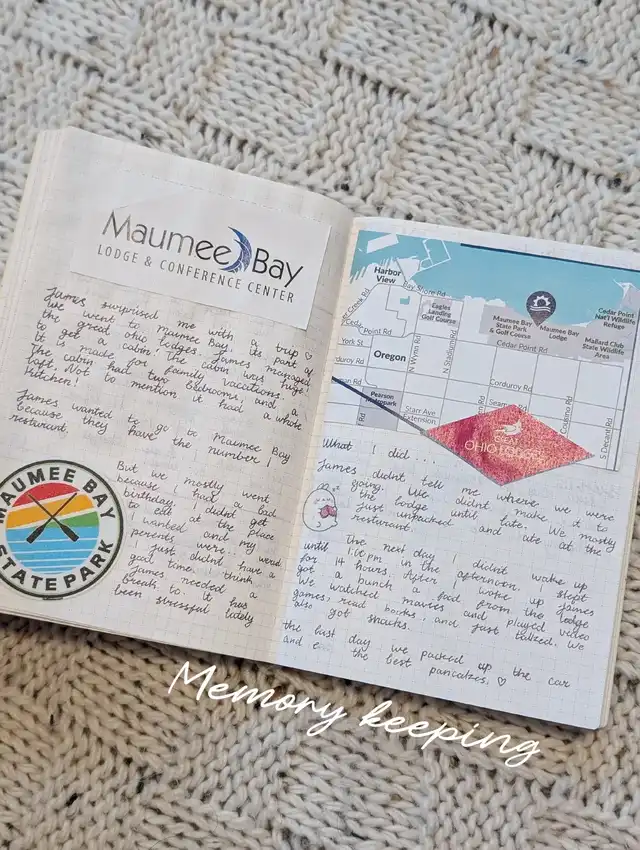 Maumee Bay
LODGE & CONFERENCE CENTER
James surprised me with a trip ♡
We went to Maumee Bay, its part of
the great ohio lodges. James managed
to get a cabin! The cabin was huge!
It is made for family vacations.
The cabin had two bedrooms and a
loft. Not to mention it had a whole
kitchen!
James wanted to go to Maumee Bay
because they have the number 1
resturant.
But we mostly went
because I had a bad
birthday. I didn't get
to eat at the place
I wanted and my
perents were... weird.
I just didn't have a
good time. I think
James needed a
break to. It has
been stressful lately
MAUMEE BAY
STATE PARK
Harbor
View
Bay Shore Rd
Eagles
Landing
Golf Course
Maumee Bay
State Park
& Golf Course
Maumee Bay
Lodge
Cedar Point
Nat'l Wildlife
Refuge
Mallard Club
State Wildlife
Area
Cedar Point Rd
Point Rd
York St
Oregon
N Wynn Rd
N Stadium Rd
Corduroy Rd
Pearson
Metropark
Starr Ave
Extension
Seaman Rd
Cousino Rd
S Decant Rd
GREAT
OHIO LODGES
What I did...
James didn't tell me where we were
going. We didn't make it to
the lodge until late. We mostly
just unpacked and ate at the
resturant.
The next day I didn't wake up
until 1:10 pm in the afternoon, I slept
for 14 hours. After I woke up James
got a bunch a food from the lodge
We watched movies and played video
games, read books, and just talked. We
also got snacks.
the last day we packed up the car
and the best pancakes. ♡
Memory keeping